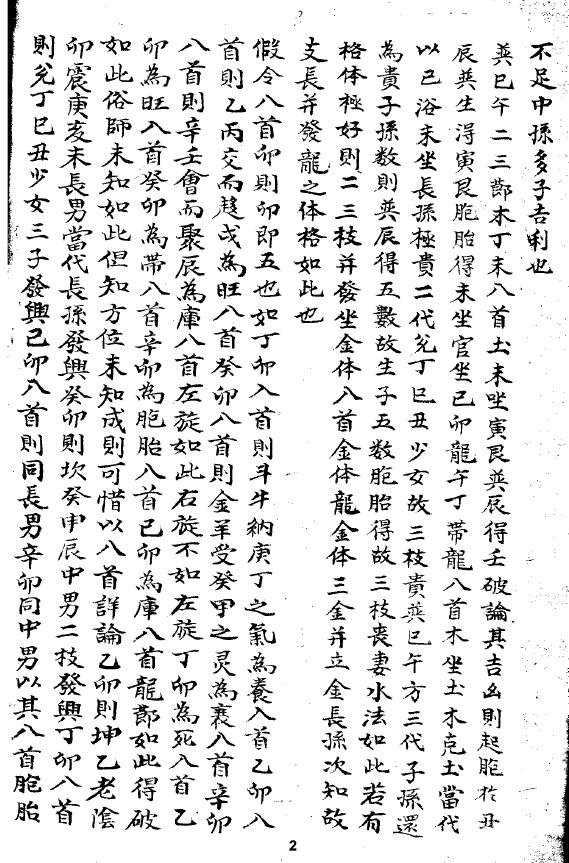 不足中孫多子吉利也
巽巳午二三節木丁未入首土未坐寅艮巽辰得壬破論其吉凶則起胞於丑
辰巽生淂寅艮胞胎得未坐官坐己卯龍午丁帶龍入首木坐土木克土當代
以巳浴未坐長孫極貴二代兌丁巳丑少女故三枝貴巽巳午方三代子孫還
為貴子孫数則巽辰得五數故生子五数胞胎得故三枝喪妻水法如此若有
格体極好則二三枝并發坐金体入首金体龍金体三金并立金長孫次知故
支長并發龍之体格如此也
假令入首卯則卯即五也如丁卯入首則斗牛納庚丁之氣為養入首乙卯入
首則乙丙交而趍戌為旺入首癸卯入首則金羊受癸甲之灵為衰入首辛卯
入首則辛壬會而聚辰為庫入首左旋如此右旋不如左旋丁卯為死入首乙
卯為旺入首癸卯為帶入首辛卯為胞胎入首己卯為庫入首龍節如此得破
如此俗師未知如此但知方位未知成則可惜以入首詳論乙卯則坤乙老陰
卯震庚亥未長男當代長孫發興癸卯則坎癸申辰中男二枝發興丁卯入首
則兌丁巳丑少女三子發興己卯入首則同長男辛卯同中男以其入首胞胎
2